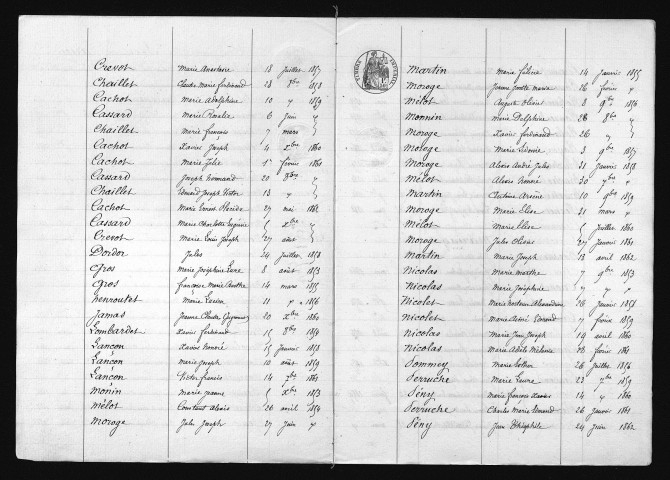 Crevot Marie Anastasie 18 Juillet 1857
Chaillet Claude Marie Ferdinand 28 Xbre 1858
Cachot Marie Adolphine 10 " 1859
Cassard Marie Rosalie 6 Juin "
Chaillet Marie François 7 mars
Cachot Xavier Joseph 4 Xbre 1860
Cachot Marie Julie 1er février 1861
Cassard Joseph 20 9bre
Chaillet Edouard Joseph Victor 13 "
Cachot Marie Ernest 27 mai 1862
Cassard Marie Charlotte Eugénie 5 Xbre "
Crevot Marie Louis Joseph 27 août
Dordor Jules 24 Juillet 1858
Gros Marie Joséphine 8 août 1853
Gros Françoise Marie 14 mars 1855
henroutet Marie 11 " 1856
Jamas Jeanne Claude 20 Xbre 1860
Lombardot Xavier Ferdinand 15 9bre 1854
Lançon Xavier honoré 15 Janvier 1858
Lançon Marie Joseph 10 août 1859
Lançon Victor francis 14 7bre 1861
monin Marie Jeanne 5 Xbre 1853
mélot Constant Alexis 26 avril 1854
moroge Jules Joseph 27 Juin "
TIMBRE IMPERIAL
Martin Marie Félicie 14 Janvier 1855
Moroge Jeanne Marie 26 février "
Mélot Auguste Olivier 8 9bre 1856
Monnin Marie Delphine 28 8bre "
Moroge Xavier Ferdinand 26 "
Moroge Marie Sidonie 3 9bre 1857
Moroge Alexis André Jules 31 Janvier 1858
Mélot Alexis honoré 30 7bre "
Martin Arsène 10 9bre 1859
Moroge Marie Elise 31 mars "
Mélot Marie Elise 5 Juillet 1860
Moroge Jules 27 Janvier 1861
Martin Marie Joseph 13 avril 1862
Nicolas Marie Marthe 7 9bre 1853
Nicolas Marie Joséphine " " "
Nicolet Marie Alexandrine 28 Janvier 1858
Nicolet Marie Aimé 7 février 1859
Nicolas Marie Joseph 19 avril 1860
Nicolas Marie Adèle Mélanie 28 février 1861
Pommey Marie 26 Juillet 1856
Perruche Marie Laure 22 7bre 1859
Pény Marie François Xavier 14 " 1860
Perruche Charles Marie 26 Janvier 1861
Pény Jean Théophile 24 Juin 1862